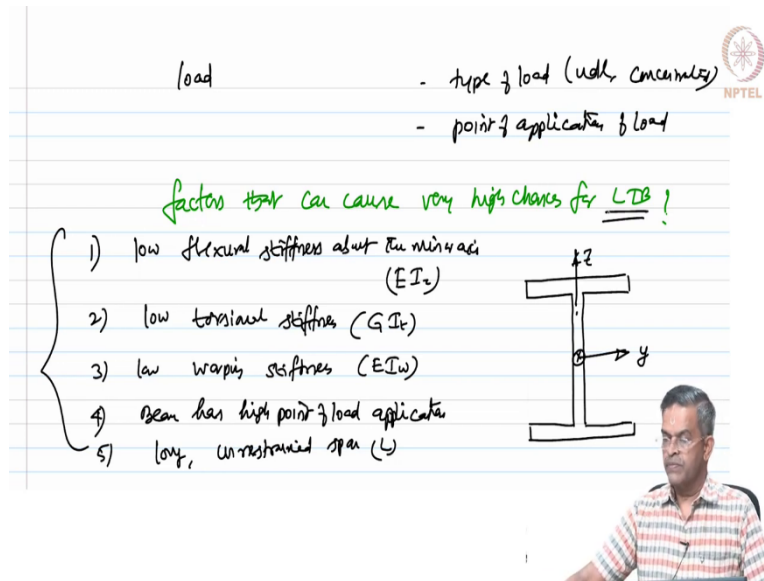 load - type of load (udl, concentrated)
NPTEL
- point of application of load
factors that can cause very high chances for LTB?
1) low flexural stiffness about the minor axis
(EIz)
2) low torsional stiffness (GIt)
3) low warping stiffness (EIw)
4) Beam has high point of load application
5) long, unrestrained span (L)
z
y